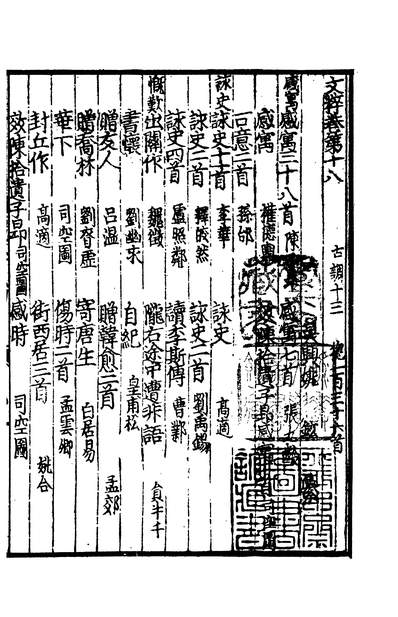 文粹卷第十八
古調十三 揔一百三十六首
吳興姚鉉
感寓 感寓三十八首 陳 感寓七首 張九
感寓 權德輿 效陳拾遺子昂感
古意二首 孫郃
詠史 詠史十一首 李華 詠史 高適
詠史二首 釋皎然 詠史二首 劉禹錫
詠史四首 盧照鄰 讀李斯傳 曹鄴
慨歎 出關作 魏徵 隴右途中遭非語 負半千
書懷 劉幽求 自紀 皇甫松
贈友人 吕溫 贈韓愈二首 孟郊
贈喬林 劉眘虛 寄唐生 白居易
華下 司空圖 傷時二首 孟雲卿
封丘作 高適 街西居三首 姚合
效陳拾遺子昻 司空圖 感時 司空圖